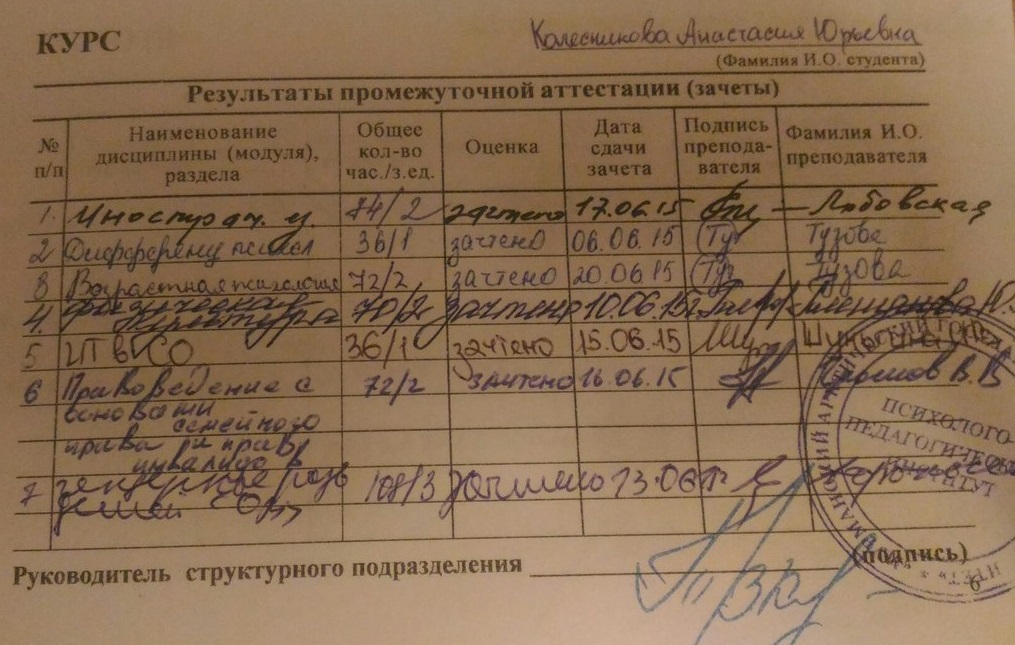 КУРС
Колесникова Анастасия Юрьевна
(Фамилия И.О. студента)
Результаты промежуточной аттестации (зачеты)
№ п/п Наименование дисциплины (модуля), раздела Общее кол-во час./з.ед. Оценка Дата сдачи зачета Подпись препода-вателя Фамилия И.О. преподавателя
1. Иностран. 74/2 зачтено 17.06.15 Лябовская
2 психол 36/1 зачтено 06.06.15 Тузова
3 Возрастная психология 72/2 зачтено 20.06.15 Тузова
4. Физическая культура 70/2 зачтено 10.06.15
5 36/1 зачтено 15.06.15
6 Правоведение с 72/2 зачтено 16.06.15 В.В
основами семейного
права и прав
инвалидов
7 108/3 зачтено 13.06
детей
ПСИХОЛОГО-
ПЕДАГОГИЧЕСКИЙ
ИНСТИТУТ
Руководитель структурного подразделения (подпись)
6